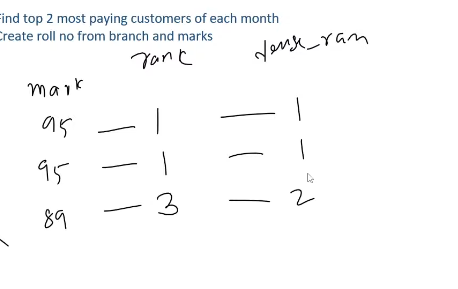 Find top 2 most paying customers of each month
Create roll no from branch and marks
rank dense_ran
mark
95 — 1 — 1
95 — 1 — 1
89 — 3 — 2